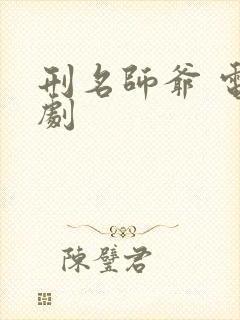 刑名師爺 電
劇
陳璧君